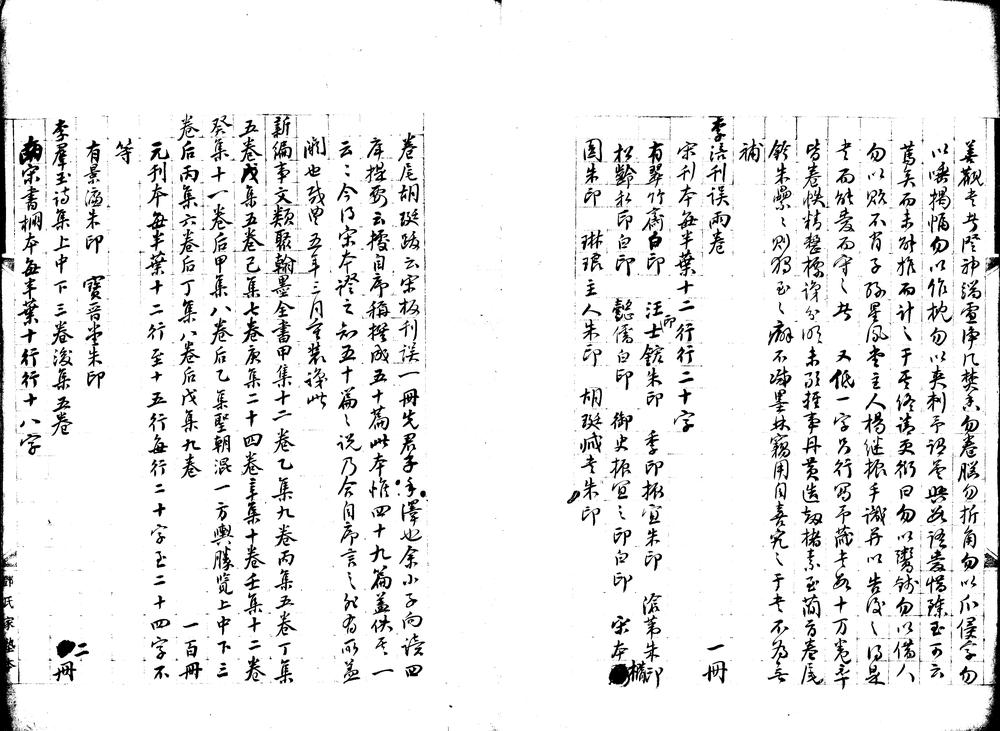 善觀書者澄神端慮淨几焚香勿卷腦勿折角勿以爪侵字勿
以唾揭幅勿以作枕勿以夾刺予謂吳興數語愛惜臻至可云
篤矣而未計推而計之于其終請更衍曰勿以鬻錢勿以借人
勿以貽不肖子孫星鳳堂主人楊繼振手識并以告後之得是
書而能愛而守之者 又低一字另行寫予藏書數十萬卷率
皆卷帙精整標識分明未敢輕事丹黃造劫楮素至簡首卷尾
鈐朱纍纍則獨至之癖不減墨林竊用自喜究之于書不為無
補
李涪刊誤兩卷 一冊
宋刊本每半葉十二行行二十字
有翠竹齋白印 汪士鋐印朱印 季印振宜朱印 滄葦朱印
松齡私印白印 懿儒白印 御史振宜之印白印 宋本橢
圓朱印 琳琅主人朱印 胡珽臧書朱印
卷尾胡珽跋云宋板刊誤一冊先君子手澤也余小子向讀四
庫提要云據自序稱撰成五十篇此本惟四十九篇蓋佚其一
云云今得宋本證之知五十篇之說乃合自序言之我有所益
開也哉 五年三月重裝識此
新編事文類聚翰墨全書甲集十二卷乙集九卷丙集五卷丁集
五卷戊集五卷己集七卷庚集二十四卷辛集十卷壬集十二卷
癸集十一卷后甲集八卷后乙集聖朝混一方輿勝覽上中下三
卷后丙集六卷后丁集八卷后戊集九卷 一百冊
元刊本每半葉十二行至十五行每行二十字至二十四字不
等
有景濂朱印 寶晉堂朱印
李羣玉詩集上中下三卷後集五卷 二冊
南宋書棚本每半葉十行行十八字